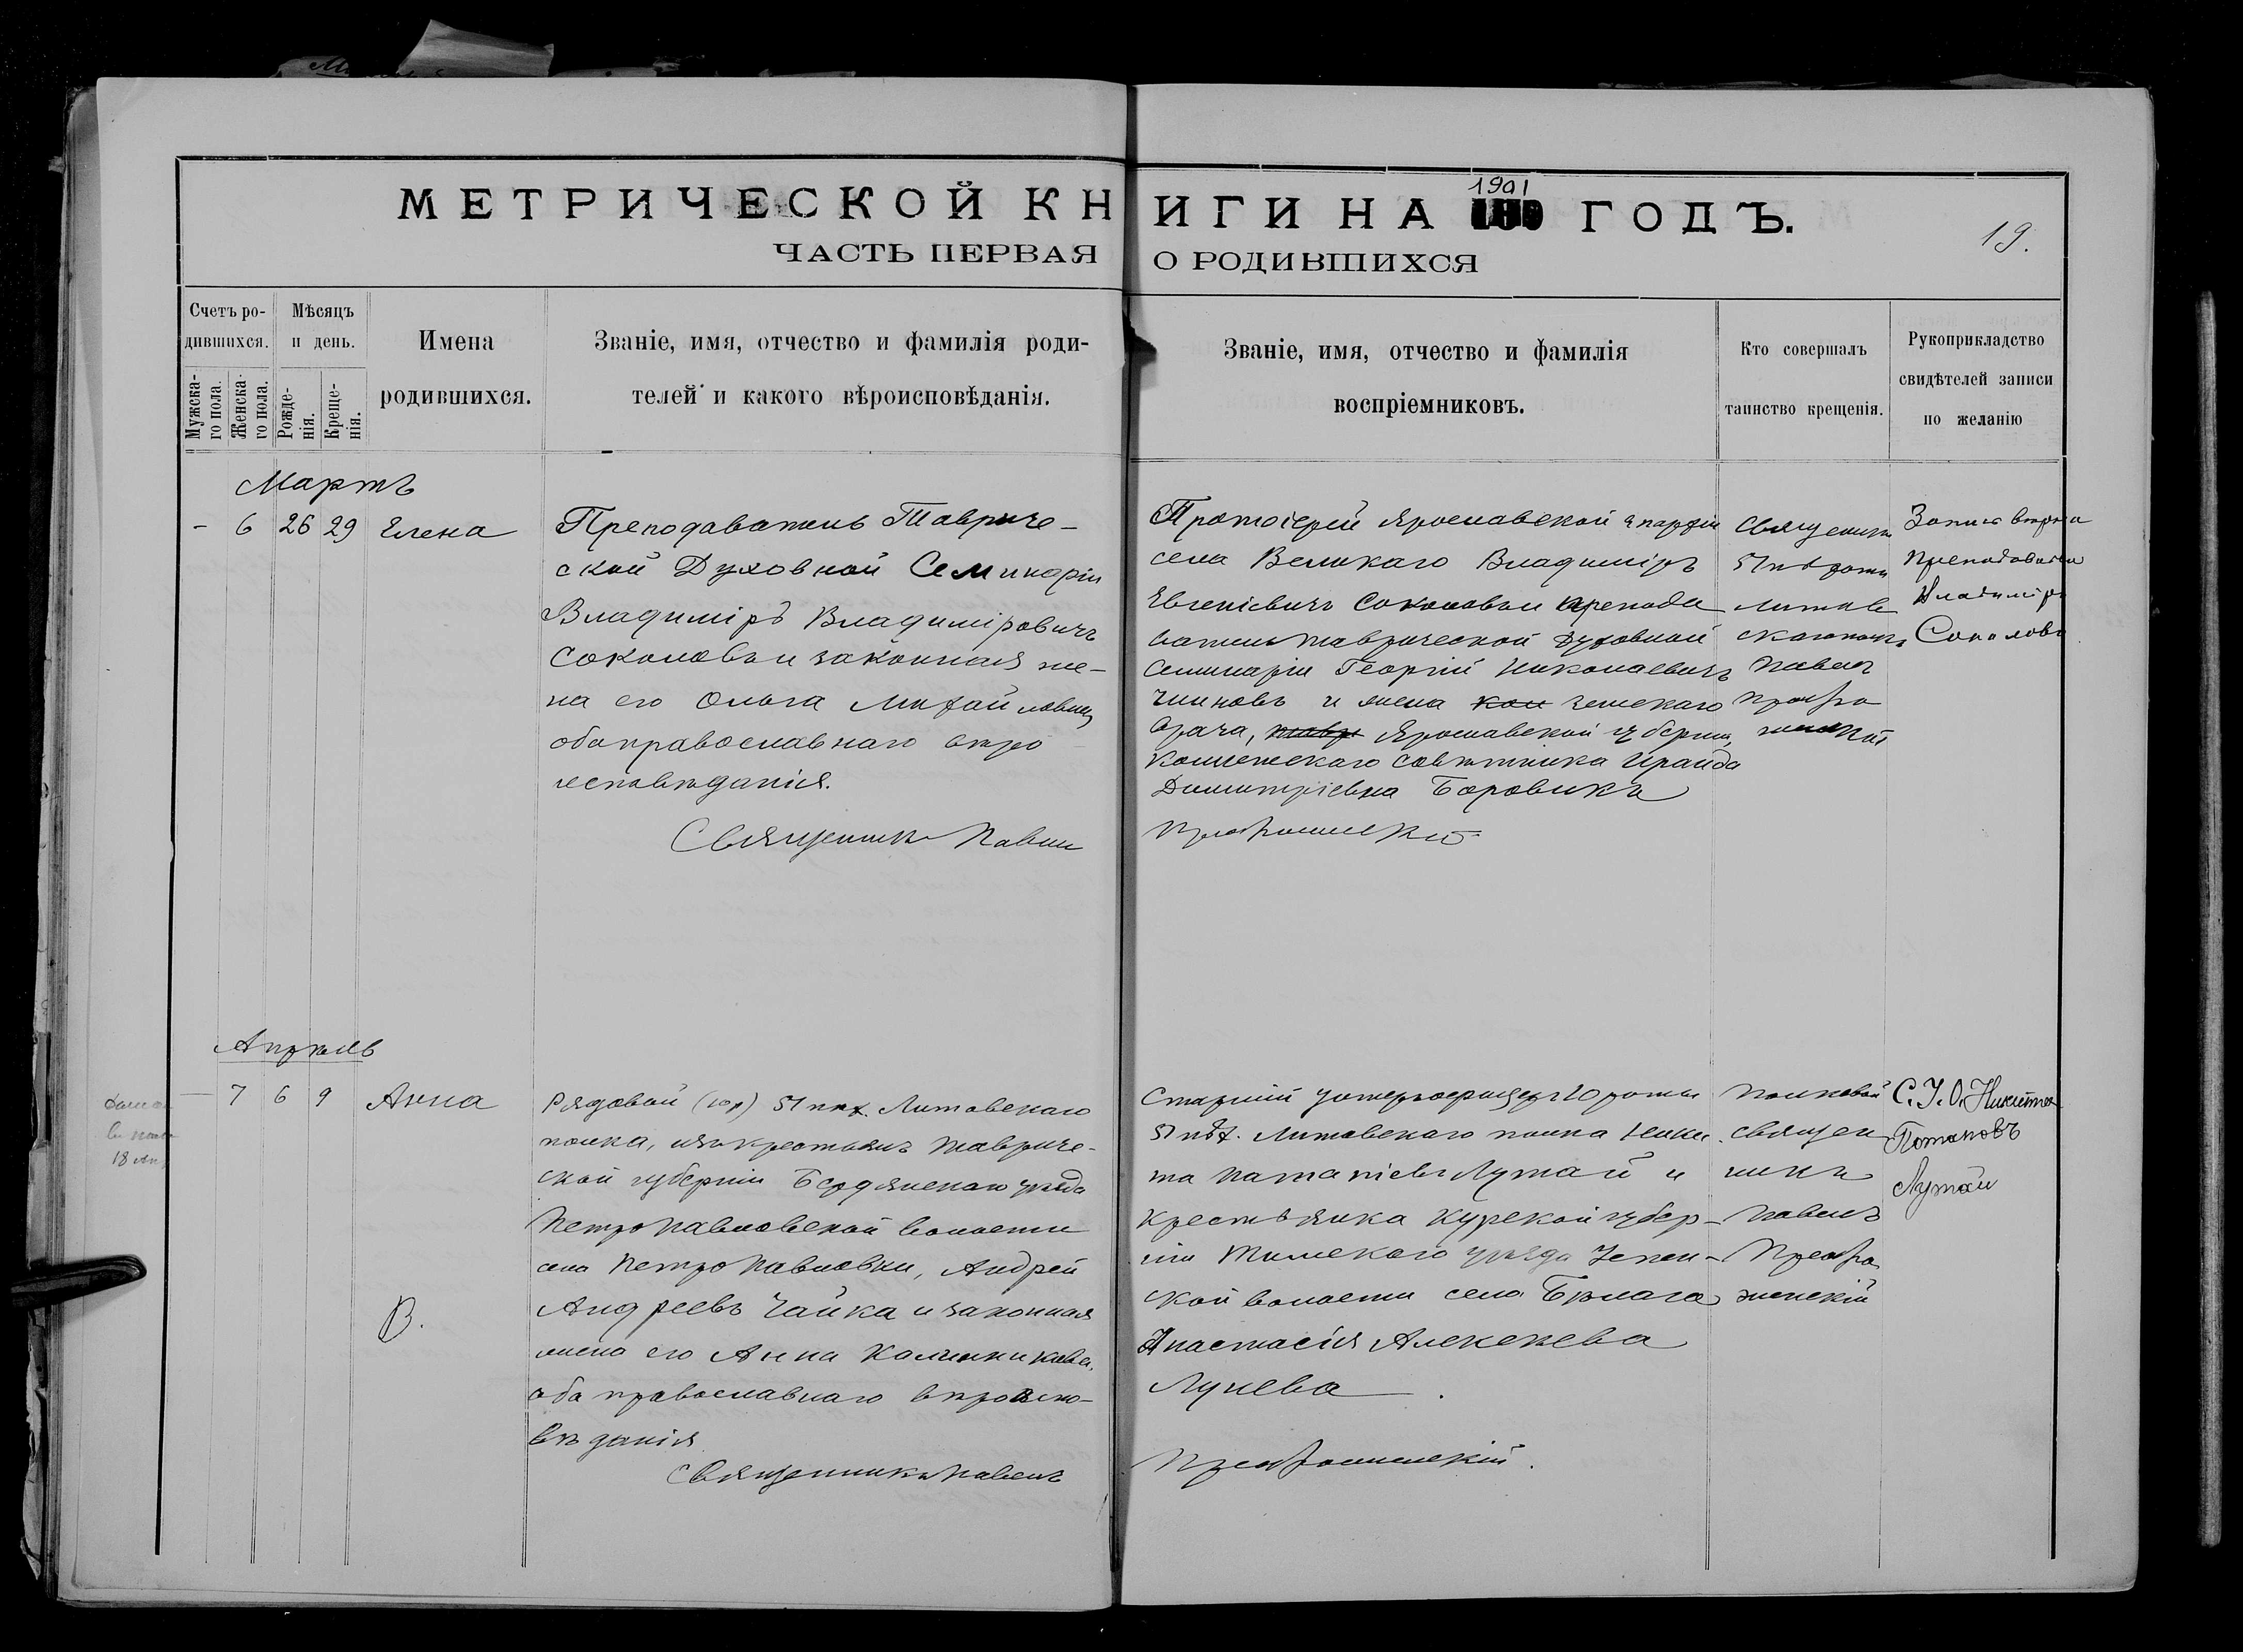 МЕТРИЧЕСКОЙ КНИГИ НА 1901 ГОДЪ.
19.
ЧАСТЬ ПЕРВАЯ О РОДИВШИХСЯ
Счетъ ро-
дившихся.
Мужска-
го пола.
Женска-
го пола.
Мѣсяцъ
и день.
Рожде-
нія.
Креще-
нія.
Имена
родившихся.
Званіе, имя, отчество и фамилія роди-
телей и какого вѣроисповѣданія.
Званіе, имя, отчество и фамилія
воспріемниковъ.
Кто совершалъ
таинство крещенія.
Рукоприкладство
свидѣтелей записи
по желанію
Мартъ
- 6 26 29 Елена
Преподаватель Тавриче-
ской Духовной Семинаріи
Владиміръ Владиміровичъ
Соколовъ и законная же-
на его Ольга Михайловна,
оба православнаго вѣро
исповѣданія.
Священникъ Павелъ
Протоіерей Ярославской епархіи
села Великаго Владиміръ
Евгеніевичъ Соколовъ и препода
ватель Таврической Духовной
Семинаріи Георгій Николаевичъ
и жена земскаго
врача, Ярославской губерніи,
Коллежскаго Совѣтника Ираида
Димитріевна Боровикъ
Преображенскій
Священникъ
51 пѣхотн
Литов
скаго полка
Павелъ
Преобра
женскій
Запись вѣрна
Преподаватель
Владиміръ
Соколовъ
Апрѣль
— 7 6 9 Анна
18 Ап
В.
Рядовой 51 пѣх. Литовскаго
полка, изъ крестьянъ Тавриче-
ской губерніи Бердянскаго уѣзда
Петропавловской волости
села Петропавловки, Андрей
Андреевъ Чайка и законная
жена его Анна
оба православнаго вѣроиспо-
вѣданія
Священникъ Павелъ
Старшій унтеръ-офицеръ 10 роты
51 пѣх. Литовскаго полка Ники
та Лутай и
крестьянка Курской губер-
ніи Тимскаго уѣзда
ской волости села
Анастасія Алексѣева
Лунева
Преображенскій.
Полковой
священ
никъ
Павелъ
Преобра
женскій
С. У. О. Никита
Потаповъ
Лутай